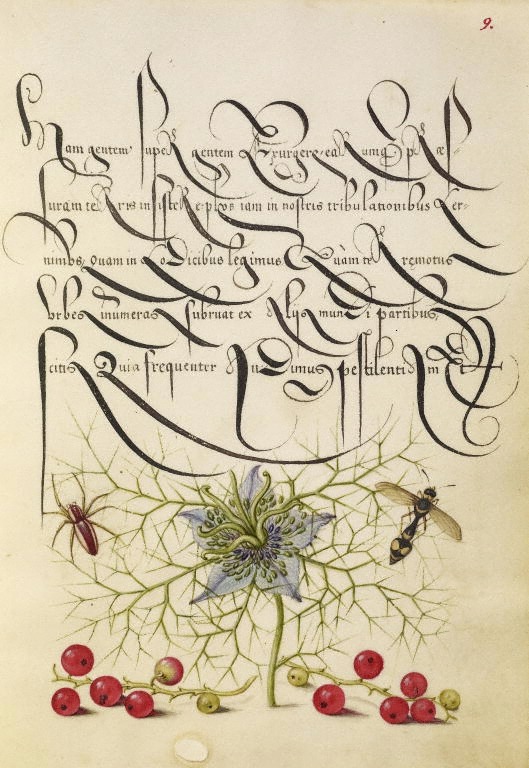 9.
Nam gentem super gentem Exurgere, earumq præs
suram terris insistere plus iam in nostris tribulationibus Cer-
nimus, Quam in coDicibus legimus Quam terræmotus
Vrbes inumeras subruat ex Alys mundi partibus,
scitis Quia frequenter Audimus pestilentiam Et